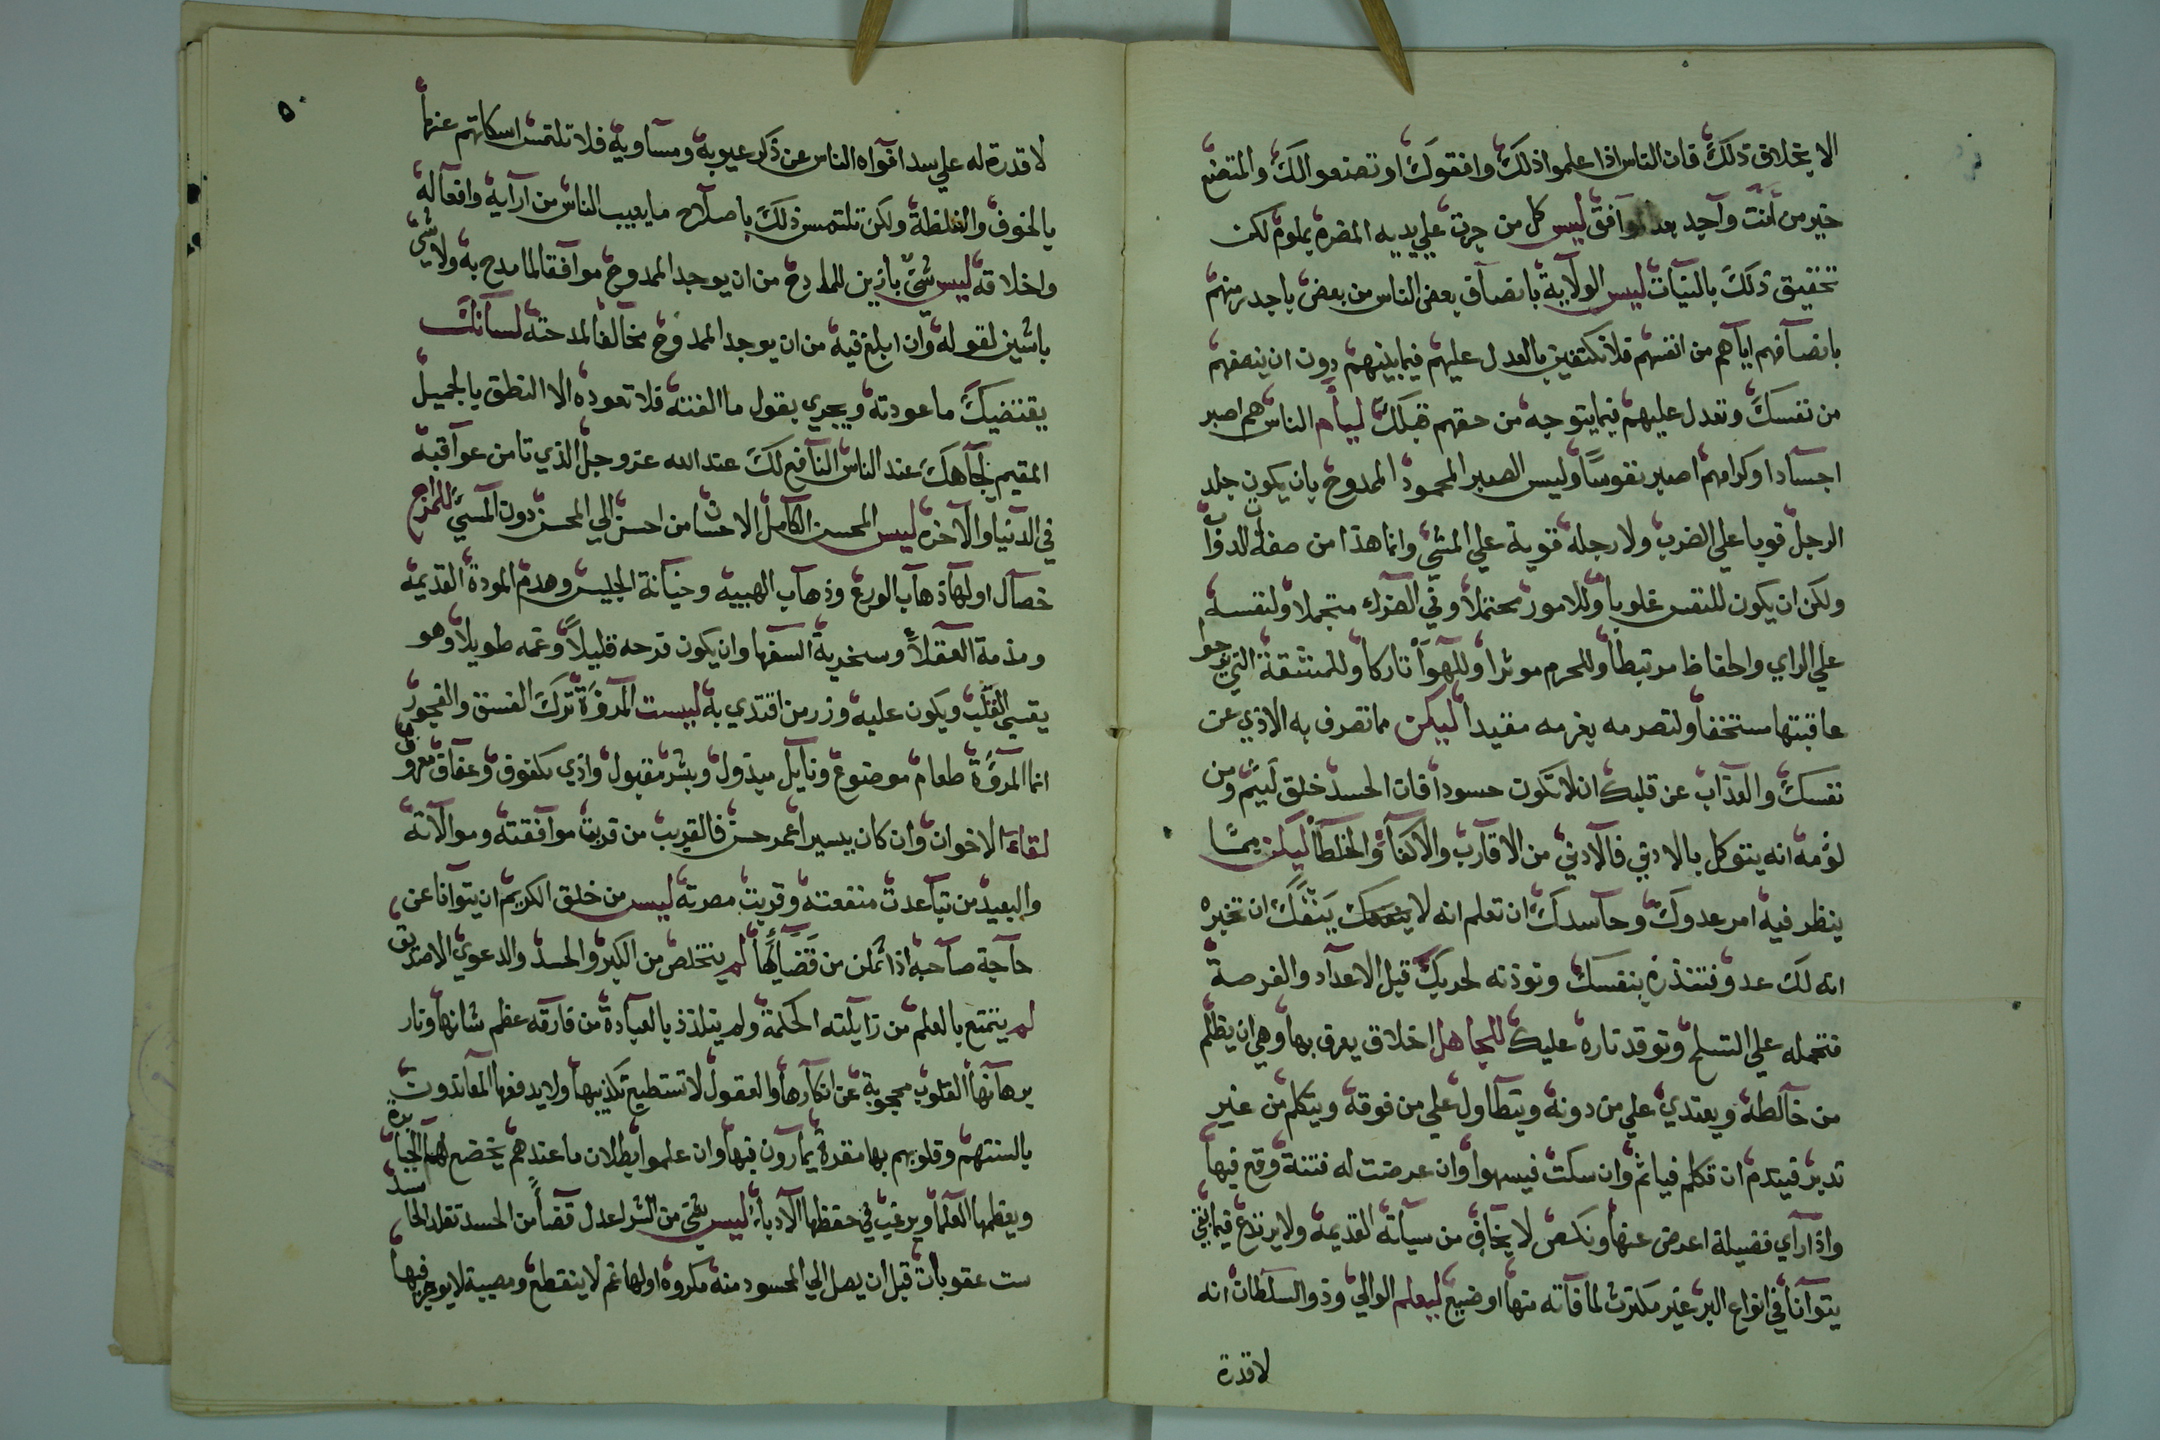 الا بخلاف ذلك فان الناس اذا علموا ذلك وافقوك او تصنعوا لك والمتصنع
خير من انت واجد بعد موافق ليس كل من جرت علي يديه المضره بملوم لكن
تحقيق ذلك بالنيات ليس الولاية بانصاف بعض الناس من بعض باجدر منهم
بانصافهم اياهم من انفسهم فلا تكتفين بالعدل عليهم فيما بينهم دون ان ينصفهم
من نفسك وتعدل عليهم فيما يتوجه من حقهم قبلك ليام الناس هم اصبر
اجسادا وكرامهم اصبر نفوسا وليس الصبر المحمود الممدوح بان يكون جلد
الرجل قويا علي الضرب ولا رجله قوية علي المشي وانما هذا من صفة الدواب
ولكن ان يكون للنفس غلوبا وللامور محتملا وفي الضراء متجملا ولنفسه
علي الراي والحفاظ مرتبطا وللحرم موثرا وللهوا تاركا وللمشقة التي يرجوا
عاقبتها مستخفا ولتصرمه بغرمه مقيدا ليكن ما تصرف به الاذي عن
نفسك والعذاب عن قلبك ان لا تكون حسودا فان الحسد خلق لييم ومن
لؤمه انه يتوكل بالادني فالادني من الاقارب والاكفاء والخلطاء ليكن مما
ينظر فيه امر عدوك وحاسدك ان تعلم انه لا ينفعك ان تخبره
انه لك عدو فتنذره بنفسك وتوذنه لحربك قبل الاعداد والفرصة
فتحمله علي التسلح وتوقد ناره عليك للجاهل اخلاق يعرف بها وهي ان يظلم
من خالطه ويعتدي علي من دونه ويتطاول علي من فوقه ويتكلم من غير
تدبر فيندم ان تكلم فياثم وان سكت فيسهوا وان عرضت له فتنة وقع فيها
واذا راي فضيلة اعرض عنها ونكص لا يخاف من سياته القديمه ولا يرتدع فيما بقي
يتوانا في انواع البر غير مكترث لما فاته منها او ضيع ليعلم الوالي وذو السلطان انه
لا قدرة
٥
لا قدرة له علي سد افواه الناس عن ذكر عيوبه ومساويه فلا تلتمس اسكاتهم عنها
بالخوف والغلظة ولكن تلتمس ذلك باصلاح ما يعيب الناس من ارايه وافعاله
واخلاقه ليس شي بازين للمادح من ان يوجد الممدوح موافقا لما مدح به ولا شي
باشين لقوله وان ابلغ فيه من ان يوجد الممدوح مخالفا لمدحته لسانك
يقتضيك ما عودته ويجري بقول ما الفته فلا تعوده الا النطق بالجميل
المقيم لجاهك عند الناس النافع لك عند الله عز وجل الذي تامن عواقبه
في الدنيا والاخره ليس المحسن الكامل الاحسان من احسن الي المحسن دون المسي للمزاح
خصال اولها ذهاب الورع وذهاب الهيبه وخيانة الجليس وهدم المودة القديمه
ومذمة العقلا وسخرية السفها وان يكون فرحه قليلا وغمه طويلا وهو
يقسي القلب ويكون عليه وزر من اقتدي به ليست المروة ترك الفسق والفجور
انما المروة طعام موضوع ونايل مبذول وبشر مقبول واذي مكفوف وعفاف معروف
لقاء الاخوان وان كان يسيرا غمر حسن فالقريب من قربت موافقته وموالاته
والبعيد من تباعدت منفعته وقربت مضرته ليس من خلق الكريم ان يتوانا عن
حاجة صاحبه اذا تمكن من قضائها لم يتخلص من الكبر والحسد والدعوي الا صديق
لم يتمتع بالعلم من زايلته الحكمة ولم يتلذذ بالعبادة من فارقه عظم شانها ونار
برهانها القلوب محجوبة عن انكارها والعقول لا تستطيع تكذيبها ولا يدفعها المعاندون
بالسنتهم وقلوبهم بها مقرة يمارون فيها وان علموا بطلان ما عندهم يخضع لها الجبابرة
ويعظمها العلما ويرغب في حفظها الادباء ليس شي من الشر اعدل قضا من الحسد تفد الحاسد
ست عقوبات قبل ان يصل الي المحسود منه مكروه اولها غم لا ينقطع ومصيبة لا يوجر فيها